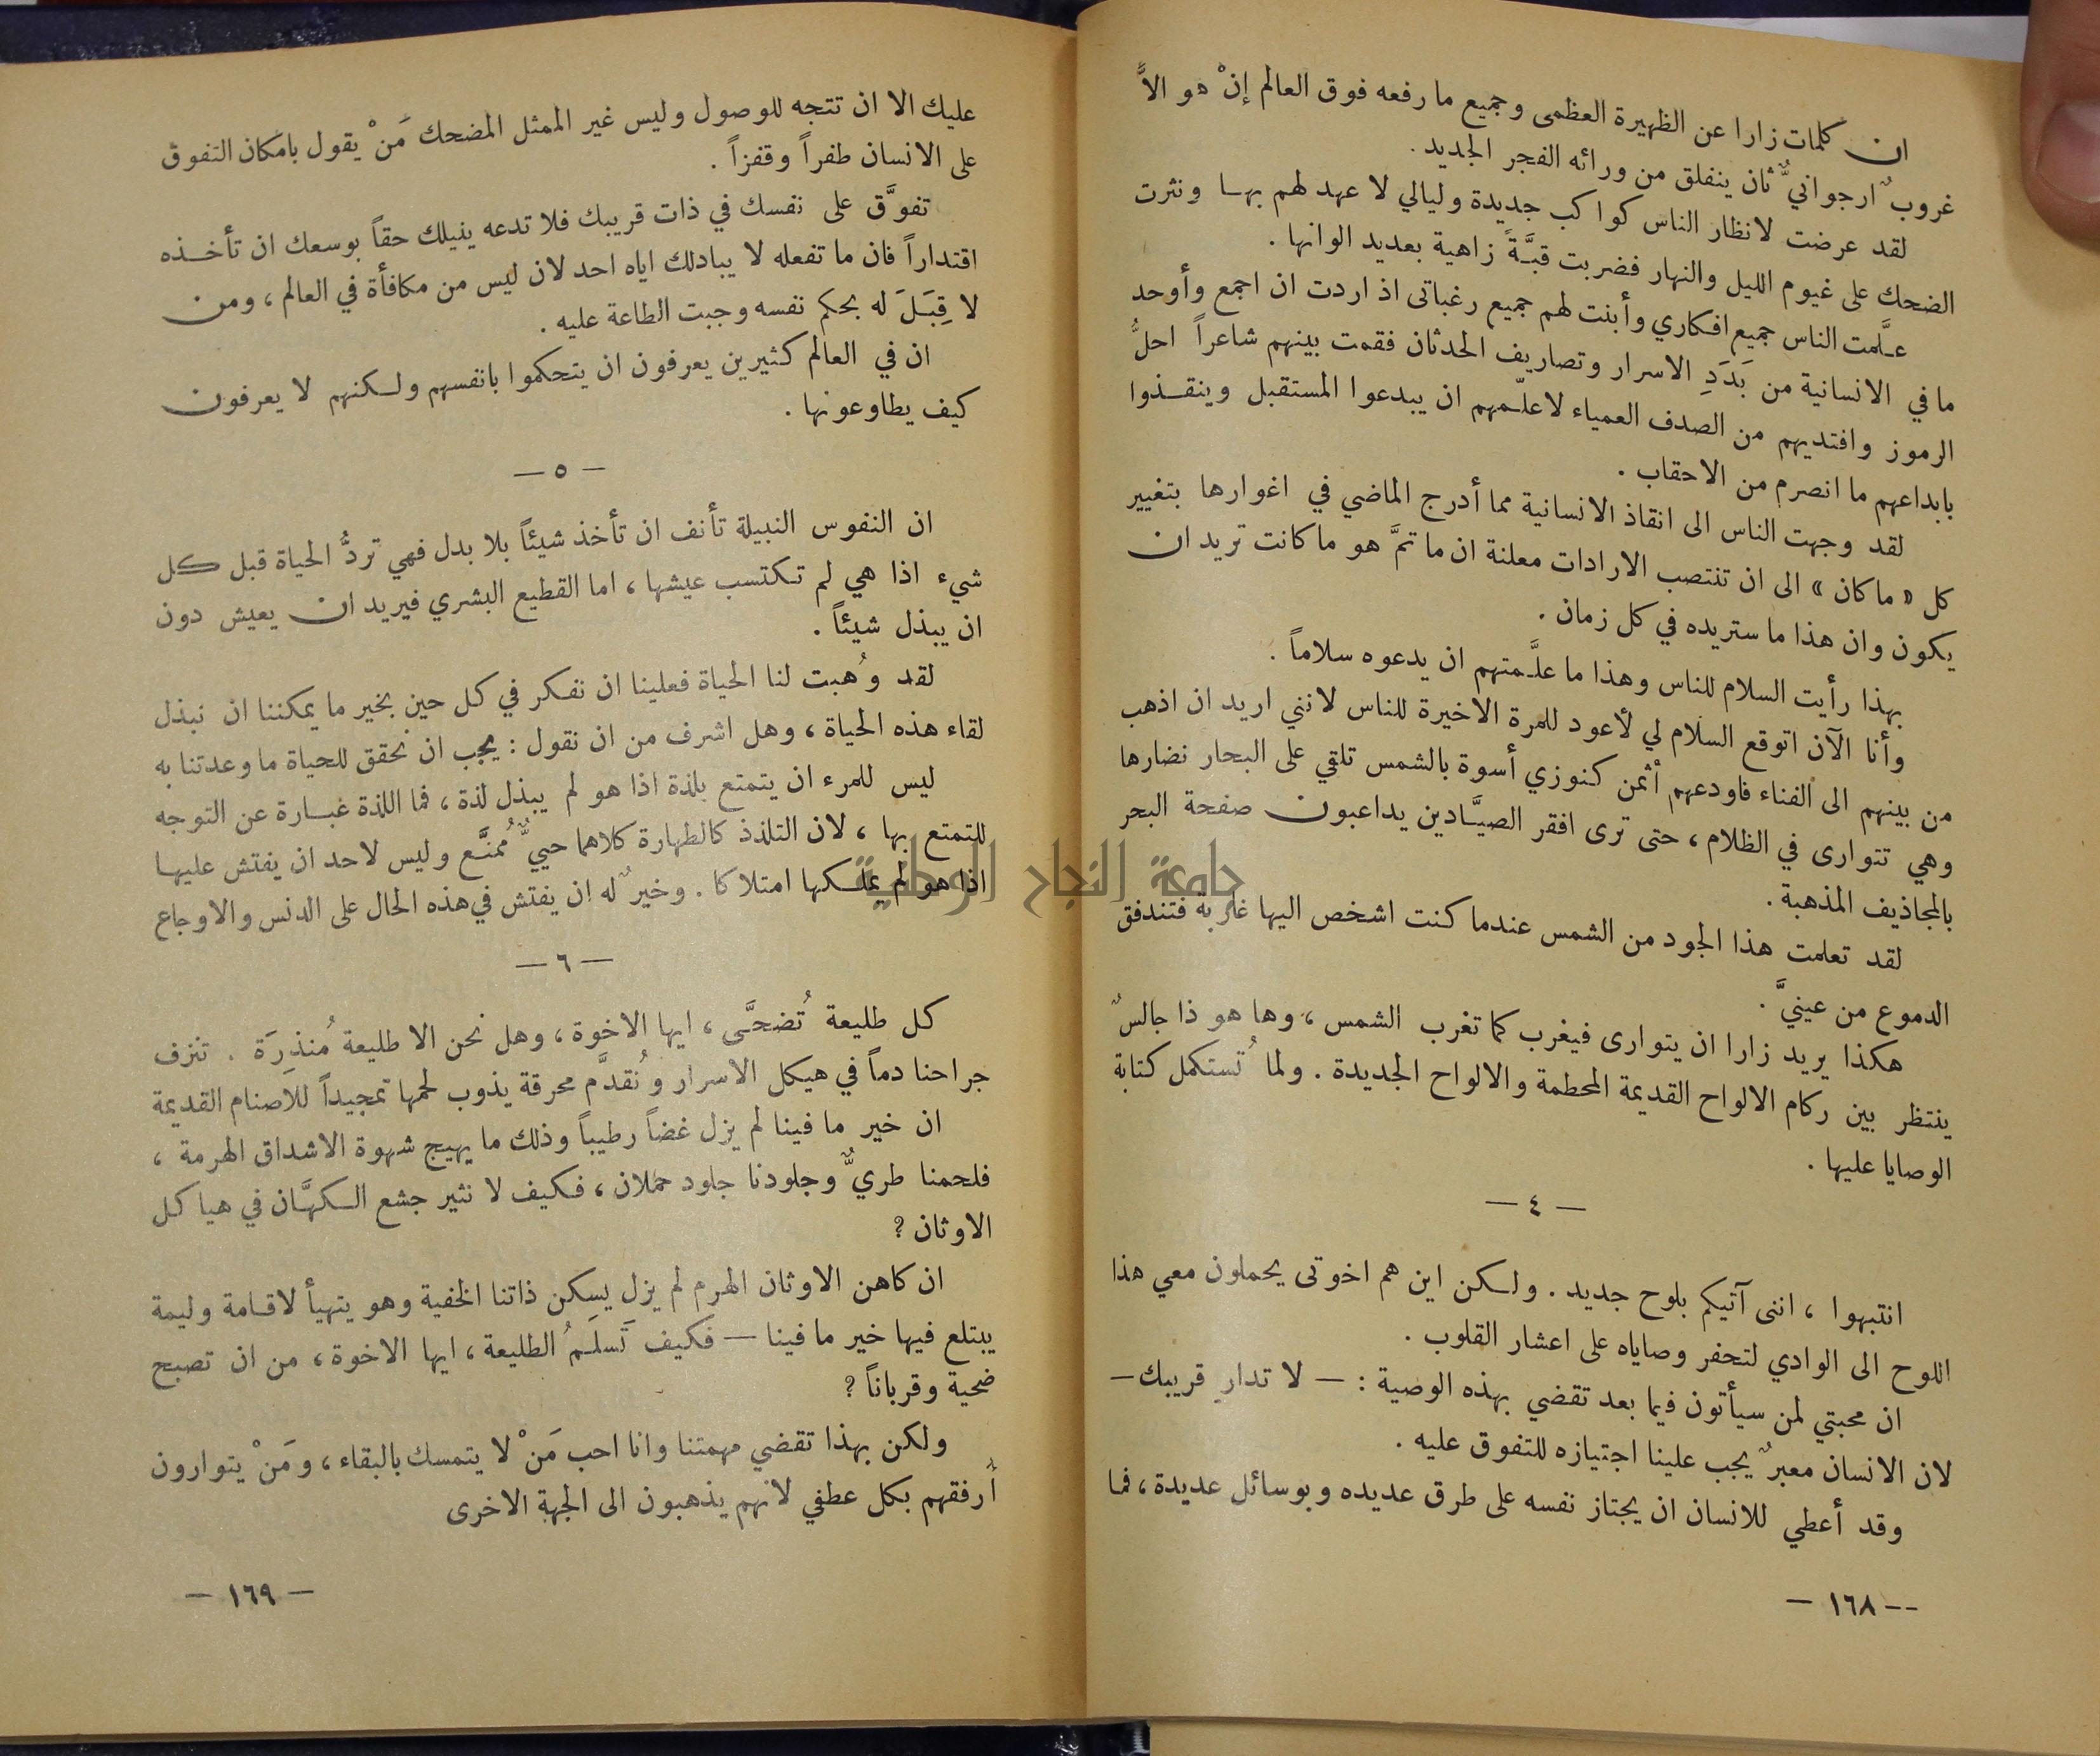 ان كلمات زارا عن الظهيرة العظمى وجميع ما رفعه فوق العالم إنْ هو الاَّ
غروبٌ ارجوانيٌّ ثان ينفلق من ورائه الفجر الجديد .
لقد عرضت لانظار الناس كواكب جديدة وليالي لا عهد لهم بها ونثرت
الضحك على غيوم الليل والنهار فضربت قبَّةً زاهية بعديد الوانها .
علَّمت الناس جميع افكاري وأبنت لهم جميع رغباتى اذ اردت ان اجمع وأوحد
ما في الانسانية من بَدَدِ الاسرار وتصاريف الحدثان فقمت بينهم شاعراً احلُّ
الرموز وافتديهم من الصدف العمياء لاعلّمهم ان يبدعوا المستقبل وينقذوا
بابداعهم ما انصرم من الاحقاب .
لقد وجهت الناس الى انقاذ الانسانية مما أدرج الماضي في اغوارها بتغيير
كل « ما كان » الى ان تنتصب الارادات معلنة ان ما تمَّ هو ما كانت تريد ان
يكون وان هذا ما ستريده في كل زمان .
بهذا رأيت السلام للناس وهذا ما علَّمتهم ان يدعوه سلاماً .
وأنا الآن اتوقع السلام لي لأعود للمرة الاخيرة للناس لانني اريد ان اذهب
من بينهم الى الفناء فاودعهم أثمن كنوزي أسوة بالشمس تلقي على البحار نضارها
وهي تتوارى في الظلام ، حتى ترى افقر الصيَّادين يداعبون صفحة البحر
بالمجاذيف المذهبة .
لقد تعلمت هذا الجود من الشمس عندما كنت اشخص اليها غاربة فتندفق
الدموع من عينيَّ .
هكذا يريد زارا ان يتوارى فيغرب كما تغرب الشمس ، وها هو ذا جالسٌ
ينتظر بين ركام الالواح القديمة المحطمة والالواح الجديدة . ولما تُستكمل كتابة
الوصايا عليها .
— ٤ —
انتبهوا ، اننى آتيكم بلوح جديد . ولكن اين هم اخوتى يحملون معي هذا
اللوح الى الوادي لتحفر وصاياه على اعشار القلوب .
ان محبتي لمن سيأتون فيما بعد تقضي بهذه الوصية : — لا تدارِ قريبك —
لان الانسان معبرٌ يجب علينا اجتيازه للتفوق عليه .
وقد أعطي للانسان ان يجتاز نفسه على طرق عديده وبوسائل عديدة ، فما
-- ١٦٨ —
عليك الا ان تتجه للوصول وليس غير الممثل المضحك مَنْ يقول بامكان التفوق
على الانسان طفراً وقفزاً .
تفوَّق على نفسك في ذات قريبك فلا تدعه ينيلك حقاً بوسعك ان تأخذه
اقتداراً فان ما تفعله لا يبادلك اياه احد لان ليس من مكافأة في العالم ، ومن
لا قِبَلَ له بحكم نفسه وجبت الطاعة عليه .
ان في العالم كثيرين يعرفون ان يتحكموا بانفسهم ولكنهم لا يعرفون
كيف يطاوعونها .
— ٥ —
ان النفوس النبيلة تأنف ان تأخذ شيئاً بلا بدل فهي تردُّ الحياة قبل كل
شيء اذا هي لم تكتسب عيشها ، اما القطيع البشري فيريد ان يعيش دون
ان يبذل شيئاً .
لقد وُهبت لنا الحياة فعلينا ان نفكر في كل حين بخير ما يمكننا ان نبذل
لقاء هذه الحياة ، وهل اشرف من ان نقول : يجب ان نحقق للحياة ما وعدتنا به
ليس للمرء ان يتمتع بلذة اذا هو لم يبذل لذة ، فما اللذة غبارة عن التوجه
للتمتع بها ، لان التلذذ كالطهارة كلاهما حييٌّ مُمنَّع وليس لاحد ان يفتش عليها
اذا هو لم يملكها امتلاكا . وخيرٌ له ان يفتش في هذه الحال على الدنس والاوجاع
— ٦ —
كل طليعة تُضحَّى ، ايها الاخوة ، وهل نحن الا طليعة مُنذِرَة . تنزف
جراحنا دماً في هيكل الاسرار ونُقدَّم محرقة يذوب لحمها تمجيداً للاصنام القديمة
ان خير ما فينا لم يزل غضاً رطيباً وذلك ما يهيج شهوة الاشداق الهرمة ،
فلحمنا طريٌّ وجلودنا جلود حملان ، فكيف لا نثير جشع الكهَّان في هياكل
الاوثان ؟
ان كاهن الاوثان الهرم لم يزل يسكن ذاتنا الخفية وهو يتهيأ لاقامة وليمة
يبتلع فيها خير ما فينا — فكيف تَسلَمُ الطليعة ، ايها الاخوة ، من ان تصبح
ضحية وقرباناً ؟
ولكن بهذا تقضي مهمتنا وانا احب مَنْ لا يتمسك بالبقاء ، ومَنْ يتوارون
أرفقهم بكل عطفي لانهم يذهبون الى الجهة الاخرى
— ١٦٩ —
جامعة النجاح الوطنية